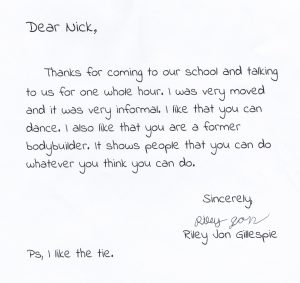 Dear Nick,
Thanks for coming to our school and talking
to us for one whole hour. I was very moved
and it was very informal. I like that you can
dance. I also like that you are a former
bodybuilder. It shows people that you can do
whatever you think you can do.
Sincerely,
Riley Jon
Riley Jon Gillespie
Ps, I like the tie.